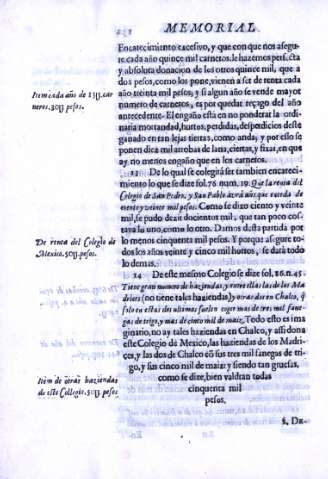 MEMORIAL
Encarecimiento excessivo, y que con que nos asegure cada año quinze mil carneros, le hazemos perfecta
y absoluta donacion de los otros quinze mil, que à
dos pesos, como los pone, vienen a ser de renta cada
año treinta mil pesos, y si algun año se vende mayor
numero de carneros, es por quedar reçago del año
antecedente. El engaño está en no ponderar la ordinaria mortandad, hurtos, perdidas, desperdicios deste
ganado en tan lejas tierras, como anda, y por esso se
ponen diez mil arrobas de lana, ciertas, y fixas, en que
ay no menos engaño que en los carneros.
Item cada año de 15U. carneros. 30U pesos.
13 De lo qual se colegirà ser tambien encarecimiento lo que se dize fol. 76. num. 19. Que la renta del
Colegio de San Pedro, y San Pablo azrà año, que exceda de
veinte y veinte mil pesos. Como se dize ciento y veinte
mil, se pudo dezir docientos mil, que tan poco costava lo uno, como lo otro. Damos desta partida por
lo menos cinquenta mil pesos. Y porque asegure todos los años veinte y cinco mil horros, se dará todo
lo demas.
De renta del Colegio de Mexico. 50U. pesos.
14 De este mesmo Colegio se dize fol. 26. n. 45.
Tiene gran numero de haziendas, y entre ellas las de los Madrices
(no tiene tales haziendas) y otras dos en Chalco, q̃
solo en estas dos ultimas suelen coger mas de tres mil fanegas de trigo, y mas de cinco mil de maiz. Todo esto es imaginario, no ay tales haziendas en Chalco, y assi dona
este Colegio de Mexico, las haziendas de los Madrices, y las dos de Chalco cõ sus tres mil fanegas de trigo, y sus cinco mil de maiz: y siendo tan gruesas,
como se dize, bien valdran todas
cinquenta mil
pesos.
Item de otras haziendas de este Collegio. 50U. pesos.
§. De-